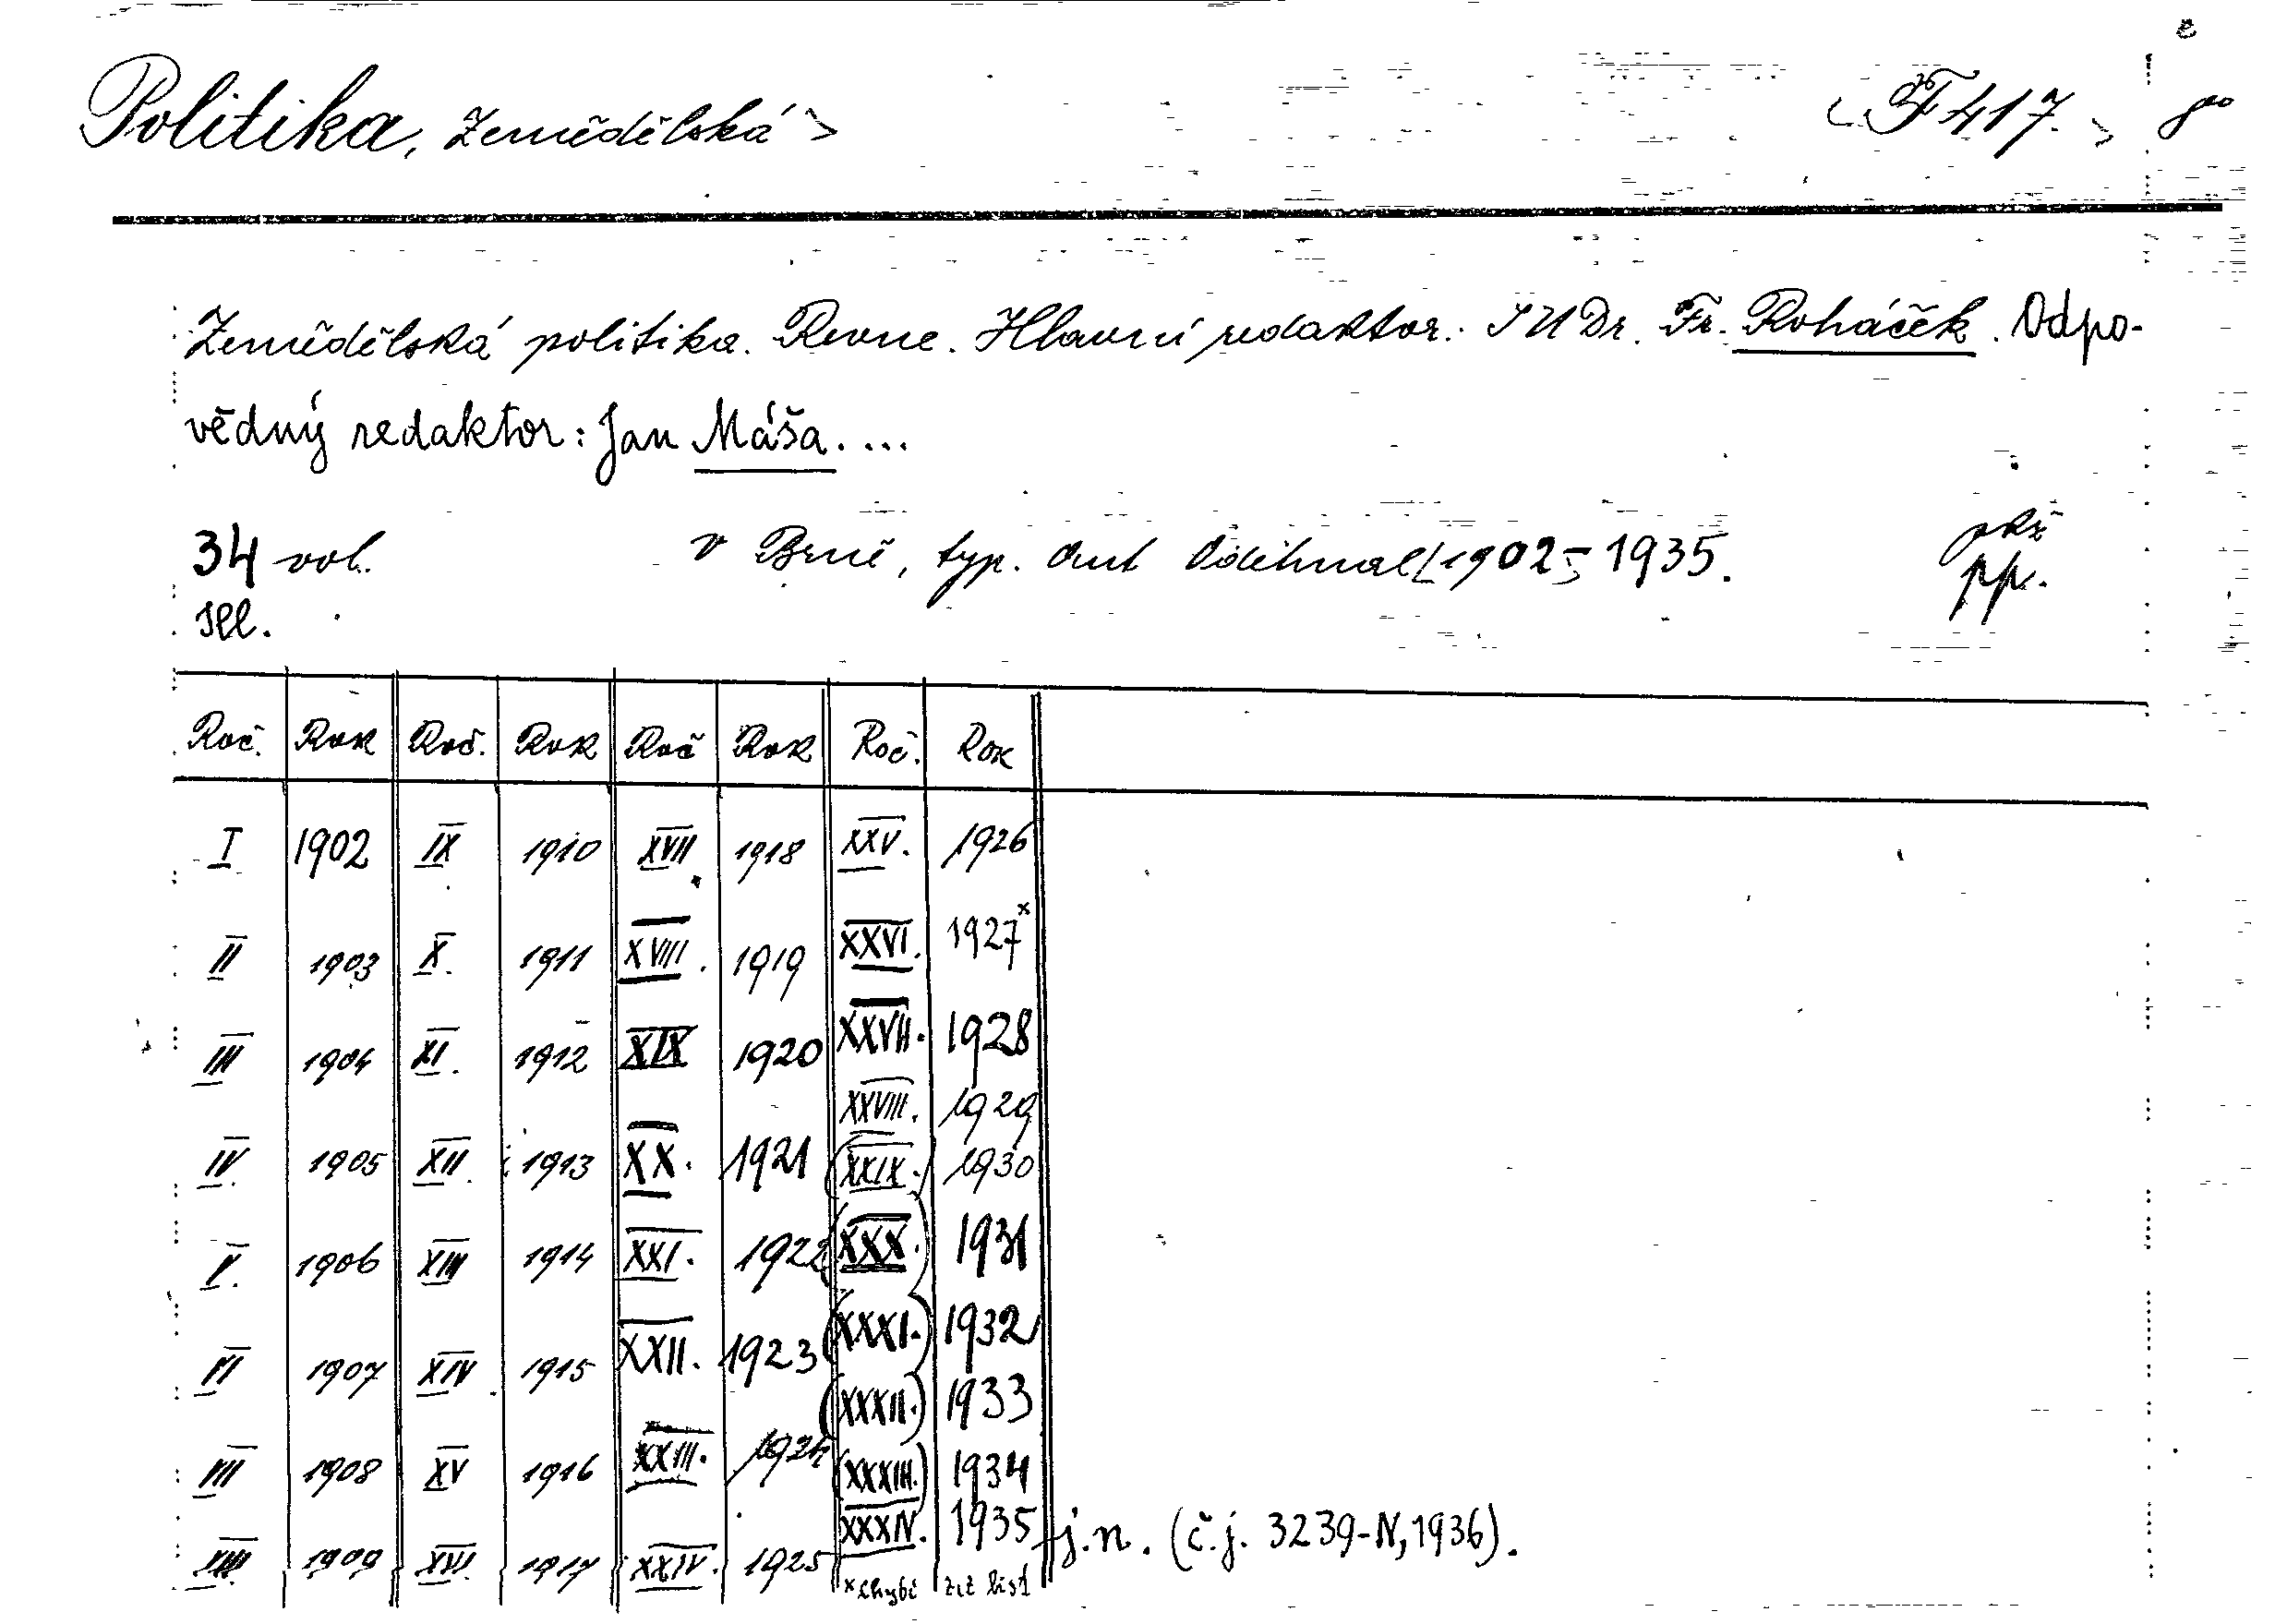 Politika, Zemědělská > < F 417. > 8°
Zemědělská politika. Revue. Hlavní redaktor: JUDr. Fr. Roháček. Odpo-
vědný redaktor: Jan Máša. ...
34 vol. v Brně, typ. Ant Odehnal [1902-] 1935. pkž
Ill. pp.
Roč. Rok Roč. Rok Roč Rok Roč. Rok
I 1902 IX 1910 XVII 1918 XXV. 1926
II 1903 X. 1911 XVIII. 1919 XXVI. 1927x
III 1904 XI. 1912 XIX 1920 XXVII. 1928
XXVIII. 1929
IV. 1905 XII. 1913 XX. 1921 (XXIX.) 1930
V. 1906 XIII 1914 XXI. 1922 (XXX.) 1931
(XXXI.) 1932
VI 1907 XIV. 1915 XXII. 1923 (XXXII.) 1933
VII 1908 XV 1916 XXIII. 1924 (XXXIII.) 1934
XXXIV. 1935 j.n. (č.j. 3239-N, 1936).
VIII. 1909 XVI. 1917 XXIV. 1925
x chybí tit list